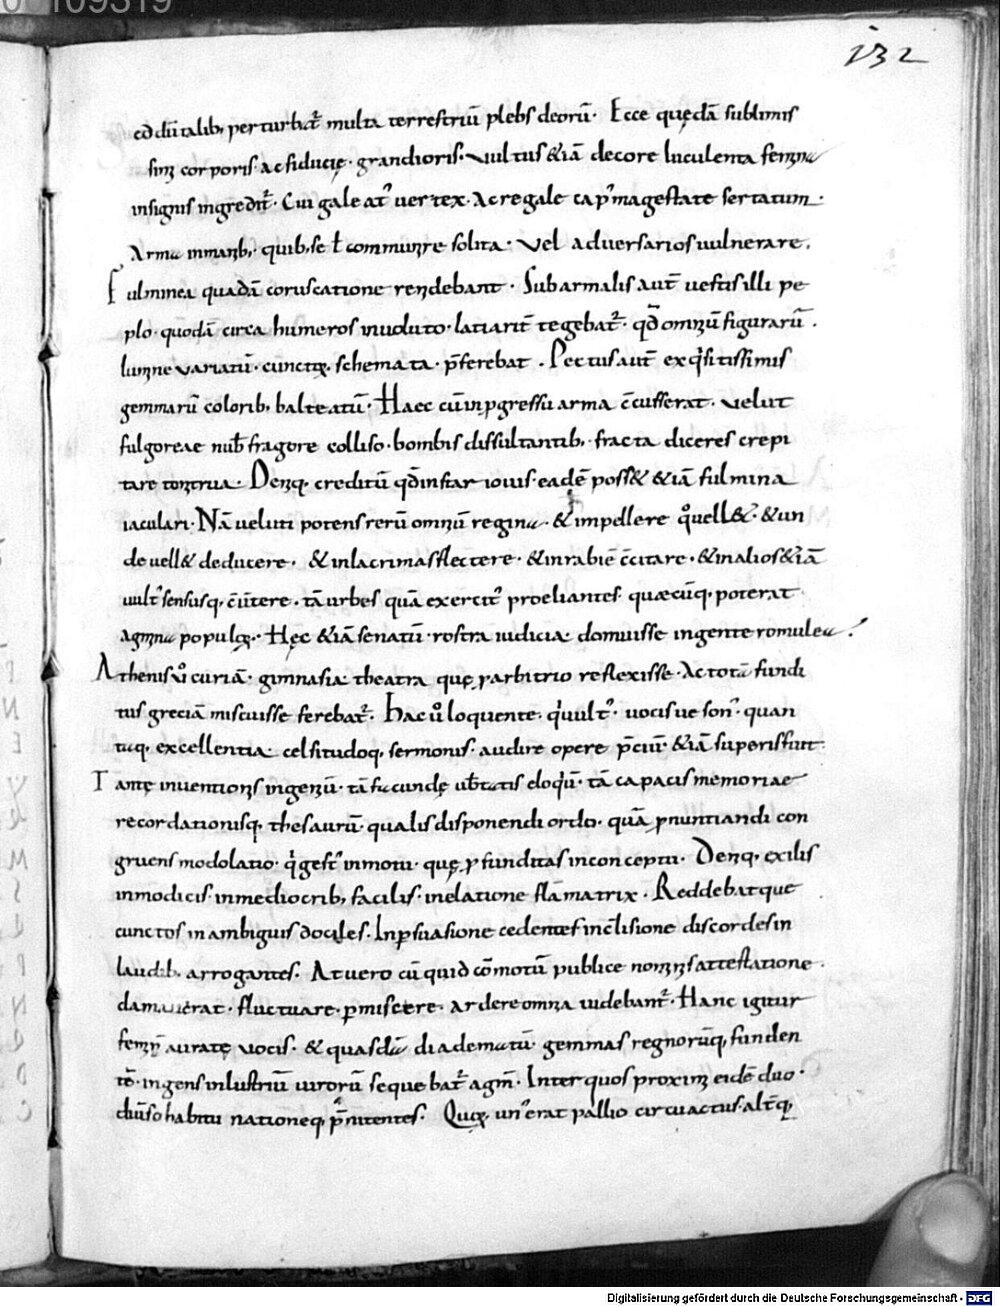 0 109319
132
cōdū talib; perturbat᷑ multa terrestriū plebs deorū. Ecce quędā sublimis
sim; corporis. ac fiducię. grandioris. vultus &iā decore luculenta femina
insignis ingredit᷑. Cui galeat᷒ uertex. Ac regale cap᷒ magestate sertatum.
Arma inmanib; quib; se ł communire solita. vel aduersarios uulnerare.
Fulminea quadā coruscatione renidebant. Subarmalis aut̄ uestis illi pe
plo. quodā circa humeros inuoluto. latiarit̄ tegebat᷑. qđ omniū figurarū.
lumine variatū. cunctaꝝ. schemata. p̄ferebat. Pectus aut̄ exq͛sitissimis
gemmarū colorib; balteatū. Haec cū in ꝓgressu arma c̄cusserat. velut
fulgoreae nub̄ fragore colliso. bombis dissultantib; fracta diceres crepi
tare tonitrua. Deniq; creditū qđ instar iouis. eadē poss& &iā fulmina
iaculari. Nā ueluti potens rerū omniū regina. & impellere q͛ uell&. & un
de uell& deducere. & in lacrimas flectere. & in rabiē c̄citare. & in alios &iā
uult᷒ sensusq; c̄uertere. tā urbes quā exercit᷒ proeliantes. quaecūq; poterat
agmina populoꝝ. Hęc &iā senatū. rostra iudicia domuisse in gente romulea.
Athenis ů curiā. gimnasia theatra quę ꝑ arbitrio reflexisse. Ac totā fundi
tus greciā miscuisse ferebat᷑. Hac ů loquente. q͛ uult᷒. vocisue son᷒. quan
taq; excellentia celsitudoq; sermonis. audire opere p̄ciū. &iā superis fuit.
Tantę inuentionis ingeniū. tā facundę ub̄tatis eloq͛ū. tā capacis memoriae
recordationisq; thesaurū. qualis disponendi ordo. quā ꝓnuntiandi con
gruens modolatio. q͛ gest᷒ in motu. quę ꝓfunditas in conceptu. Deniq; exilis
in modicis. in mediocrib; facilis. in elatione flāmatrix. Reddebat que
cunctos in ambiguis dociles. In ꝑsuasione cedentes in c̄lisione discordes in
laudib; arrogantes. At uero cū quid cōmotū publice nominis attestatione.
damauerat. fluctuare. ꝑmiscere. ardere omnia uidebant᷑. Hanc igitur
feminā auratę vocis. & quasdā diadematū gemmas regnorūq; funden
tē. ingens inlustriū uirorū sequebat᷑ agm̄. Inter quos proximi eidē duo.
diūso habitu nationeq; p̄nitentes. Quoꝝ un᷒ erat pallio circuactus. alt̄q;
Digitalisierung gefördert durch die Deutsche Forschungsgemeinschaft - DFG